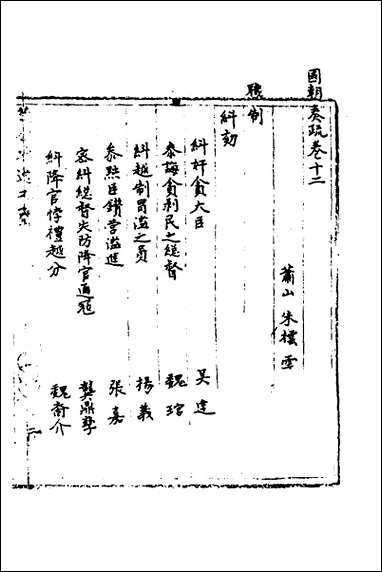 國朝奏疏卷十二
蕭山 朱櫰 雲
職制
糾劾
糾奸貪大臣 吴達
泰誨貪剥民之總督 魏琯
糾越制冒濫之員 楊義
參點臣鑽营濫進 張嘉
密糾總督失防降官通寇 龔鼎孳
糾降官悖禮越分 魏裔介